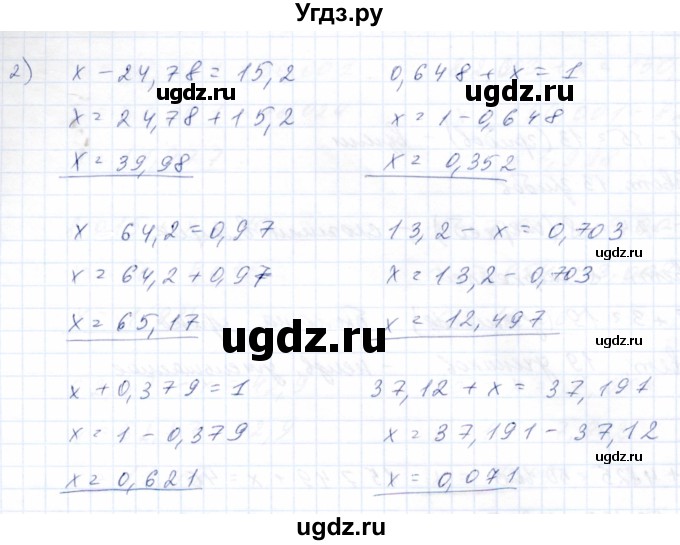 Угдз.ру
2) x - 24,78 = 15,2
x = 24,78 + 15,2
x = 39,98
0,648 + x = 1
x = 1 - 0,648
x = 0,352
x 64,2 = 0,97
x = 64,2 + 0,97
x = 65,17
13,2 - x = 0,703
x = 13,2 - 0,703
x = 12,497
x + 0,379 = 1
x = 1 - 0,379
x = 0,621
37,12 + x = 37,191
x = 37,191 - 37,12
x = 0,071
ugdz.ru
ugdz.ru
ugdz.ru
ugdz.ru
ugdz.ru
ugdz.ru
ugdz.ru
ugdz.ru
ugdz.ru